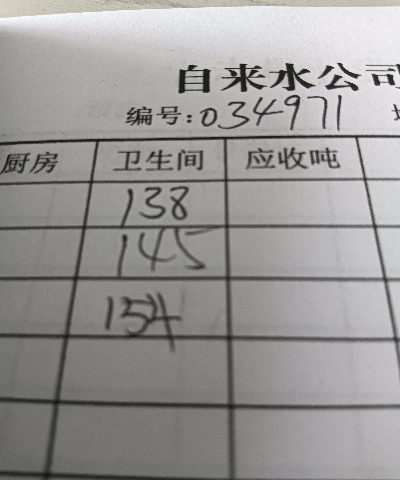 自来水公司
编号:034971
厨房 卫生间 应收吨
138
145
154